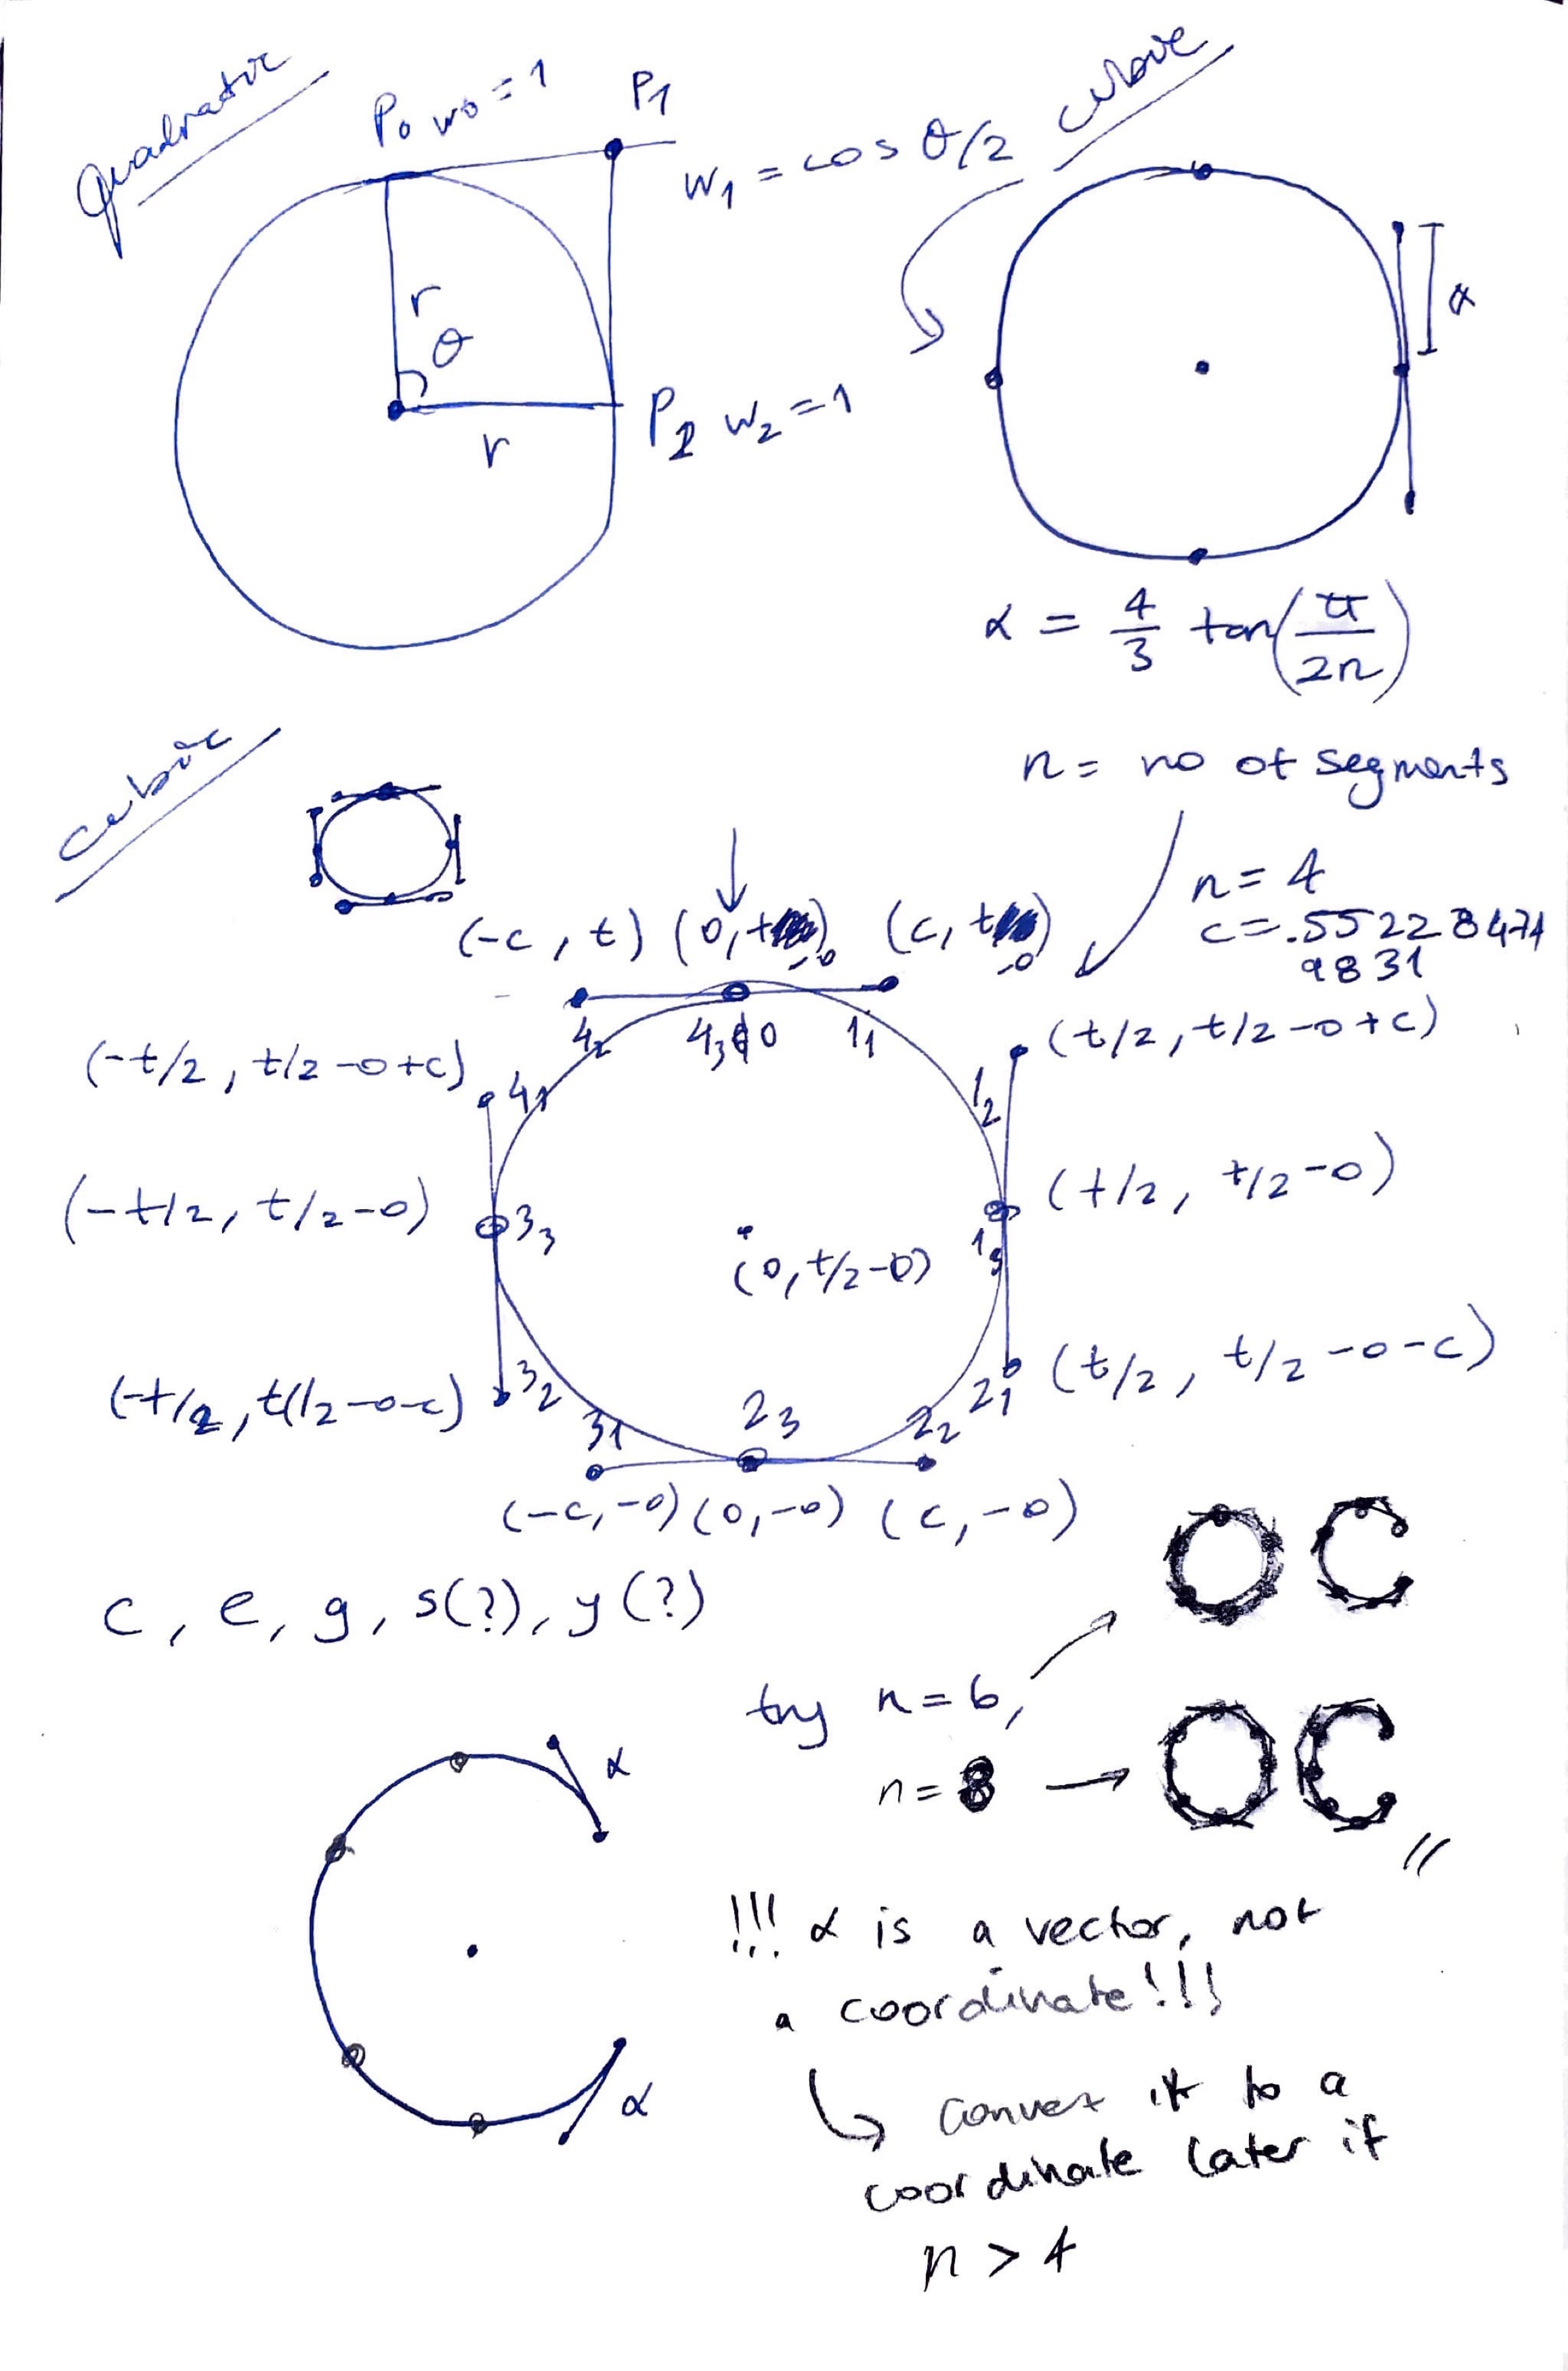 quadratic
P₀ w₀ = 1
P₁
w₁ = cos θ/2
cubic
r
θ
r
P₂ w₂ = 1
α
α = 4/3 tan(π/2n)
cubic
n = no of segments
n = 4
c = .5522 8474
9831
(-c, t) (0, t-o) (c, t-o)
4₂ 4₃ 0 1₁
(-t/2, t/2-o+c)
4₁
1₂
(t/2, t/2-o+c)
(-t/2, t/2-o)
3₃
(0, t/2-o)
1₃
(t/2, t/2-o)
(-t/2, t/2-o-c)
3₂
3₁
2₃
2₂
2₁
(t/2, t/2-o-c)
(-c, -o) (0, -o) (c, -o)
c, e, g, s(?), y(?)
O C
try n = 6,
n = 8 → O C
α
α
!!! α is a vector, not
a coordinate!!!
convert it to a
coordinate later if
n > 4